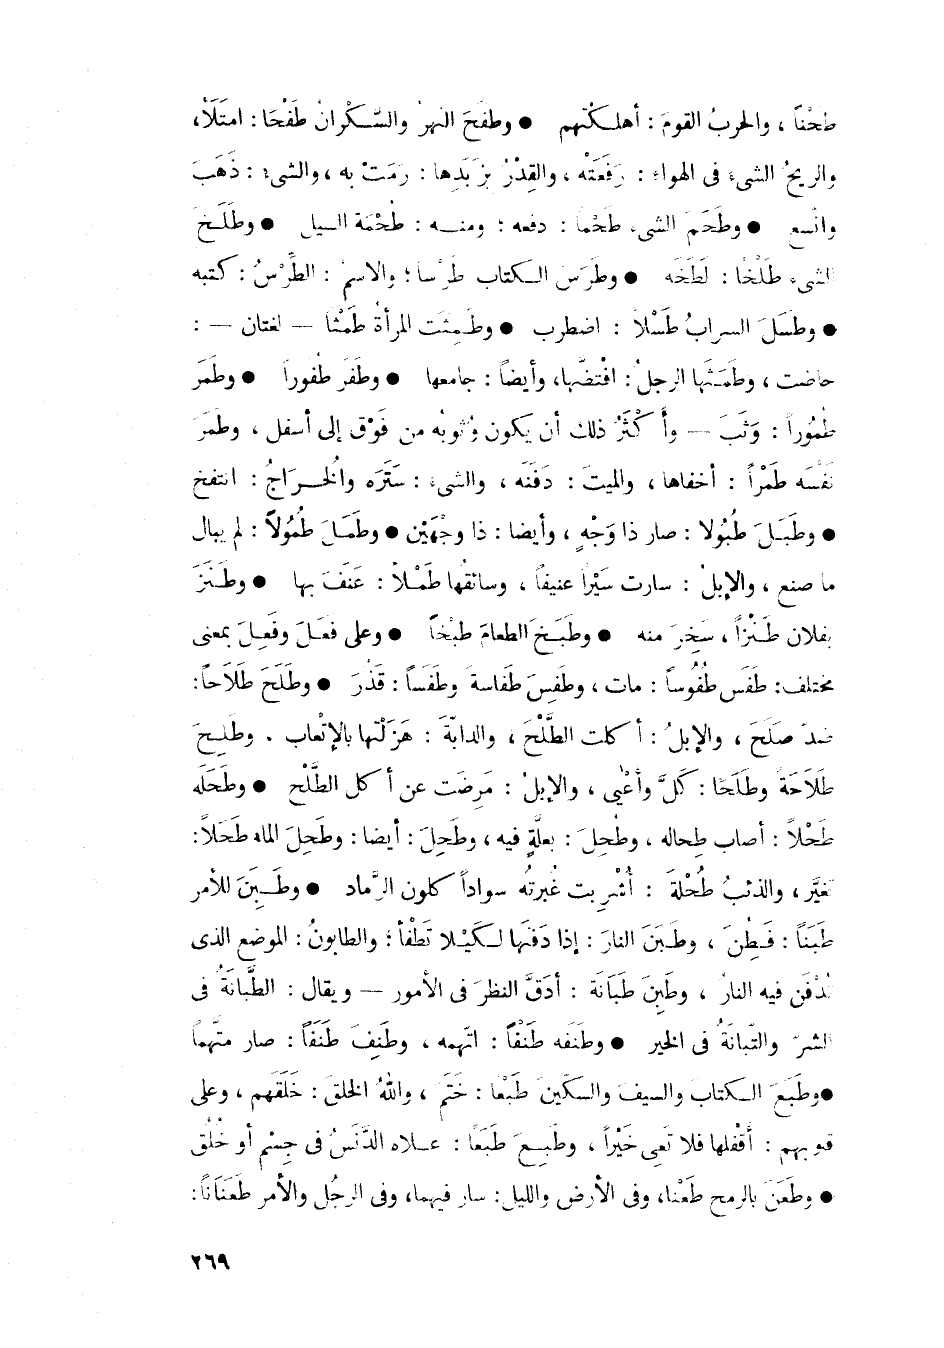 طَحْناً ، والحربُ القومَ : أهلكَتْهم ● وطفَحَ النهرُ والسَّكْرانُ طَفْحًا : امتَلَأَ،
والريحُ الشىءَ فى الهواء : رَفَعَتْه ، والقِدْرُ بزَبَدِها : رَمَتْ به ، والشىء : ذَهَبَ
واتَّسع ● وطَحَمَ الشىء طَحْمًا : دفعه ؛ ومنه : طُحْمَة السيل ● وطَلَخَ
الشىء طَلْخًا : لَطَخَه ● وطَرَس الكتاب طَرْسا ؛ والاسمُ : الطِّرْسُ : كتبه
● وطسَلَ السرابُ طَسْلاً : اضطرب ● وطَمِثَت المرأةُ طَمْثًا — لغتان — :
حاضت ، وطَمَثَها الرجلُ : افْتضَّها، وأيضاً : جامعها ● وطفَر طُفوراً ● وطمَر
طُمُوراً : وَثَبَ — وأَكْثَرُ ذلك أن يكون وُثوبُه من فَوْق إلى أسفل ، وطمَرَ
نَفْسَه طَمْراً : أخفاها ، والميتَ : دَفَنَه ، والشىءَ : سَتَرَه والخُراجُ : انتفخ
● وطَبَلَ طُبُولا : صار ذا وَجْهٍ ، وأيضا : ذا وجْهَيْن ● وطَمَلَ طُمُولاً : لم يبال
ما صنع ، والإبلُ : سارت سَيْراً عنيفاً ، وسائقُها طَمْلاً : عَنَفَ بها ● وطَنَزَ
بفلان طَنْزاً ، سَخِرَ منه ● وطَبَخَ الطعامَ طبْخاً ● وعلى فعَلَ وفَعِلَ بمعنى
مختلف: طفَس طُفُوساً : مات ، وطفِسَ طَفاسة وطَفَساً : قَذُرَ ● وطَلَحَ طَلَاحاً :
ضدّ صلَحَ ، والإبلُ : أكلت الطَّلْحَ ، والدابّةَ : هَزَلْتها بالإتْعاب . وطلِحَ
طَلَاحَةً وطَلَحًا : كَلَّ وأَعْيى ، والإبلُ : مَرِضَت عن أكل الطَّلْح ● وطَحَلَه
طَحْلاً : أصاب طِحاله ، وطُحِلَ : بعلَّةٍ فيه ، وطَحِلَ : أيضا : وطَحِلَ الماء طَحَلاً :
تغيَّر ، والذئبُ طُحْلَةً : أُشْرِبت غُبرتُه سواداً كلون الرَّماد ● وطَبِنَ للأمر
طَبَنًا : فَطِنَ ، وطَبَنَ النارَ : إذا دَفَنَها لكَيْلا تَطْفأ ؛ والطابونُ : الموضع الذى
تُدْفَن فيه النارُ ، وطَبِنَ طَبَانَة : أدَقَّ النظرَ فى الأمور — ويقال : الطَّبَانَةُ فى
الشرّ والتَّبانَةُ فى الخير ● وطنَفه طَنْفاً : اتّهمه ، وطَنِفَ طَنَفاً : صار متَّهماً
●وطَبَعَ الكتاب والسيفَ والسكينَ طَبْعًا : خَتَمَ ، واللهُ الخلقَ : خلَقَهم ، وعلى
قلوبهم : أَقْفلها فلا تَعِى خَيْراً ، وطَبِعَ طَبَعاً : علاه الدَّنَسُ فى جِسْم أو خُلُق
● وطَعَنَ بالرمح طَعْنا، وفى الأرض والليل: سار فيهما، وفى الرجُل والأمر طَعَنَاناً:
٢٦٩